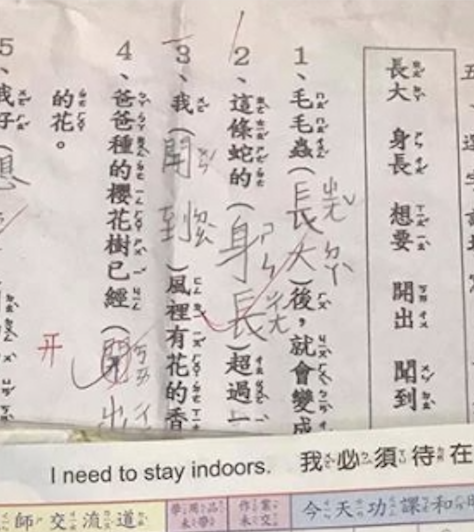 長大 身長 想要 開出 聞到
1、毛毛蟲(長大)後，就會變成
2、這條蛇的(身長)超過一
3、我(聞到)風裡有花的香
4、爸爸種的櫻花樹已經(開出
的花。
5、我好(想
开
I need to stay indoors. 我必須待在
師交流道
學用品未帶
作業未交
今天功課和